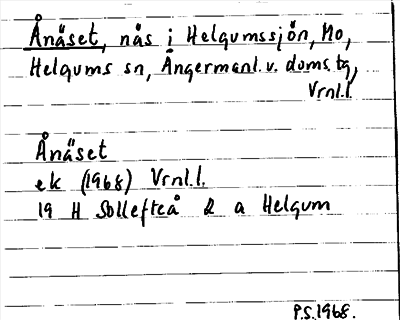 Ånäset, näs i Helgumssjön, Mo,
Helgums sn, Ångermanl. v. doms. tg,
Vrnl.l.
Ånäset
ek (1968) Vrnl.l.
19 H Sollefteå 2 a Helgum
P.S. 1968.